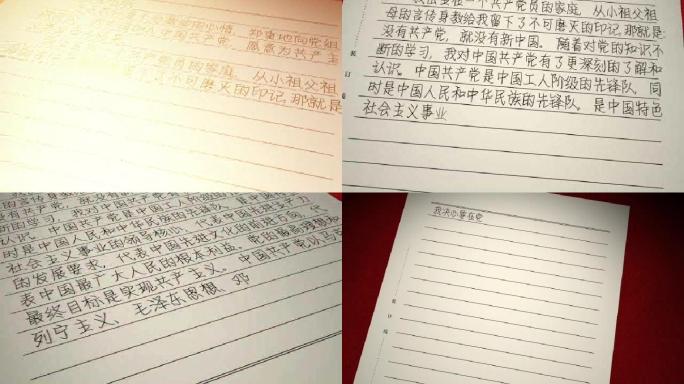 的心情,郑重地向党组
中国共产党,愿意为共产主
党员的家庭,从小祖父祖
不可磨灭的印记,那就是
我出生在一个共产党员的家庭,从小祖父祖
母的言传身教给我留下了不可磨灭的印记,那就是:
没有共产党,就没有新中国。随着对党的知识不
断的学习,我对中国共产党有了更深刻的了解和
认识。中国共产党是中国工人阶级的先锋队,同
时是中国人民和中华民族的先锋队,是中国特色
社会主义事业
装订线
的言传身教给我留下了不可磨灭
没有共产党,就没有新中国。
断的学习,我对中国共产党有了
认识。中国共产党是中国工人阶级
时是中国人民和中华民族的先锋队
社会主义事业的领导核心,代表中国先进生产力
的发展要求,代表中国先进文化的前进方向,代
表中国最广大人民的根本利益。党的最高理想和
最终目标是实现共产主义。中国共产党以马克
列宁主义、毛泽东思想、邓
我决心要在党
装订线